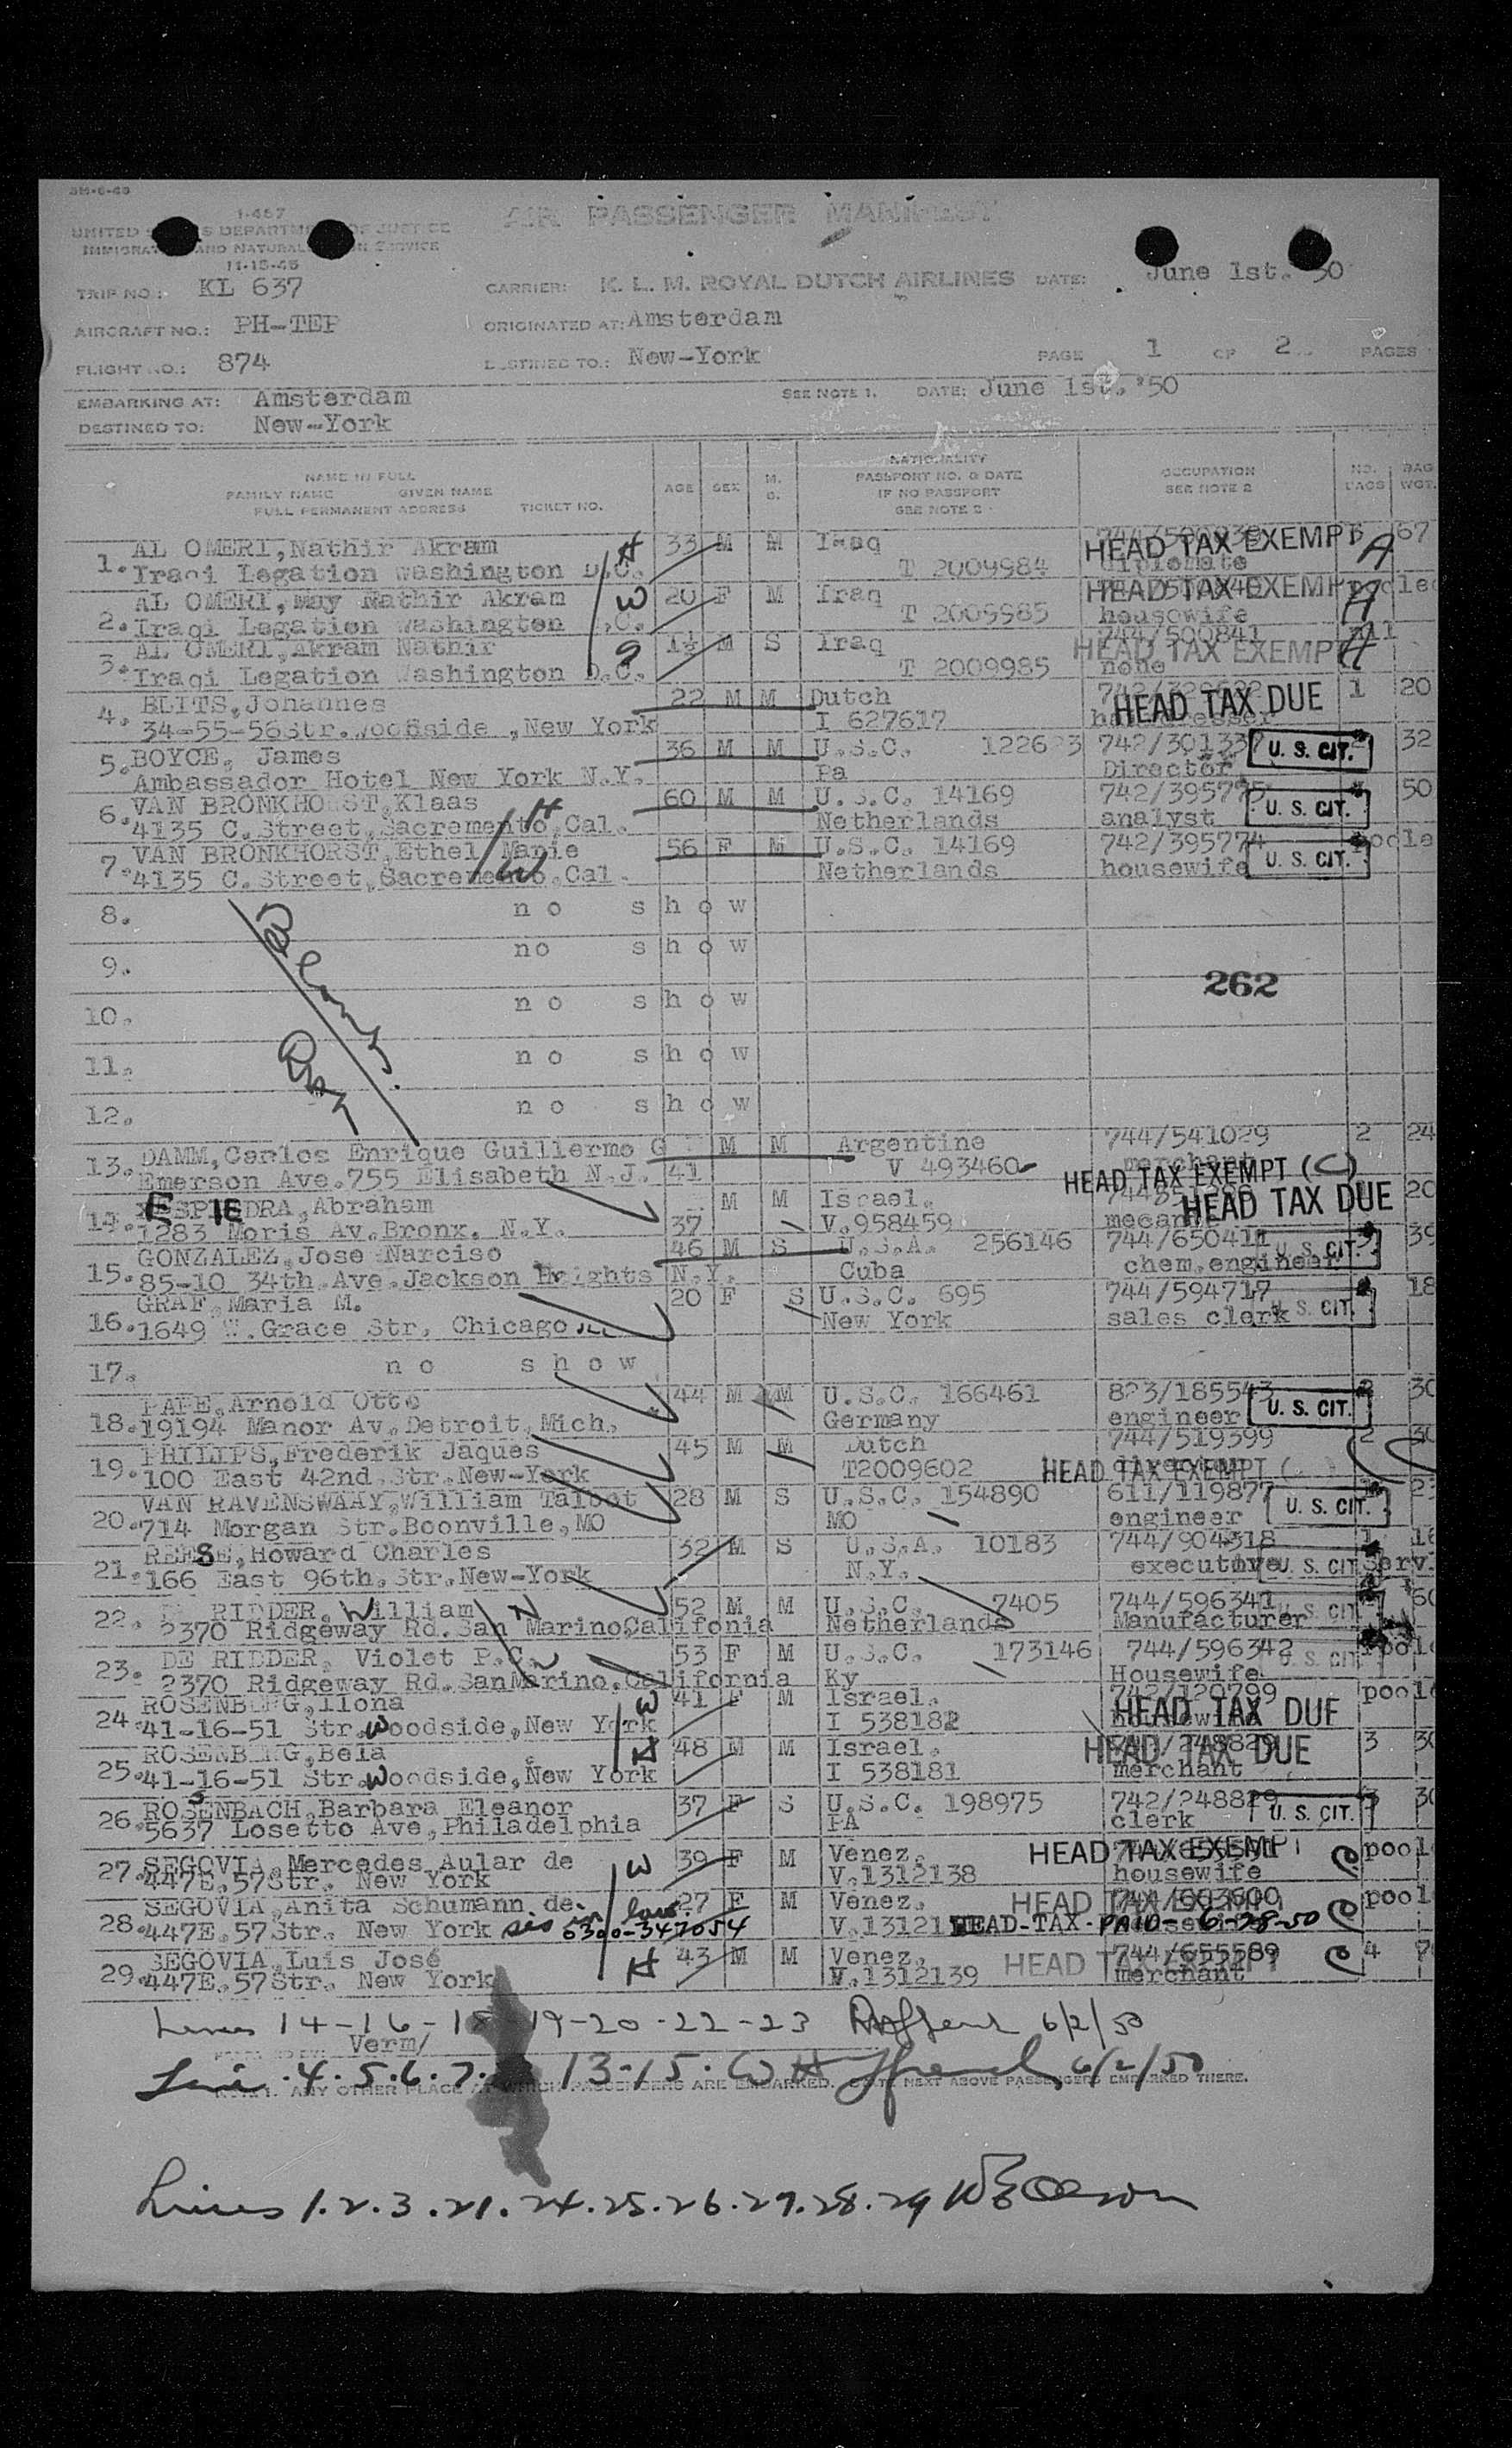 I-457
UNITED S S DEPARTM OF JUSTICE
IMMIGRAT AND NATURAL N SERVICE
11-15-45
AIR PASSENGER MANIFEST
TRIP NO: KL 637 CARRIER: K. L. M. ROYAL DUTCH AIRLINES DATE: June 1st. 50
AIRCRAFT NO.: PH-TEP ORIGINATED AT: Amsterdam
FLIGHT NO.: 874 DESTINED TO: New-York PAGE 1 OF 2 PAGES
EMBARKING AT: Amsterdam SEE NOTE 1. DATE: June 1st. '50
DESTINED TO: New-York
NAME IN FULL
FAMILY NAME GIVEN NAME
FULL PERMANENT ADDRESS TICKET NO.
AGE SEX M. S.
NATIONALITY
PASSPORT NO. & DATE
IF NO PASSPORT
SEE NOTE 2
OCCUPATION
SEE NOTE 2
NO. BAGS
BAG WGT.
AL OMERI, Nathir Akram H 33 M M Iraq HEAD TAX EXEMPT A 67
1. Iraqi Legation Washington D.C. T 2009984 diplomate
AL OMERI, May Nathir Akram W 20 F M Iraq HEAD TAX EXEMPT A
2. Iraqi Legation Washington D.C. T 2009985 housewife
AL OMERI, Akram Nathir 1½ M S Iraq 744/500841 HEAD TAX EXEMPT A
3. Iraqi Legation Washington D.C. T 2009985 none
BLITS, Johannes 22 M M Dutch HEAD TAX DUE 1 20
4. 34-55-56Str. Woodside, New York I 627617
5. BOYCE, James 36 M M U.S.C. U. S. CIT. 32
Ambassador Hotel New York N.Y. Pa Director
6. VAN BRONKHORST, Klaas H 60 M M U.S.C. 14169 742/395775 U. S. CIT. 50
4135 C. Street, Sacremento, Cal. Netherlands analyst
7. VAN BRONKHORST, Ethel Marie W 56 F M U.S.C. 14169 742/395774 U. S. CIT.
4135 C. Street, Sacremento, Cal. Netherlands housewife
8. no show
9. no show
262
10. no show
11. no show
12. no show
13. DAMM, Carlos Enrique Guillermo G M M Argentine 744/541029 2 24
Emerson Ave. 755 Elisabeth N.J. 41 V 493460 merchant HEAD TAX EXEMPT (C)
14. Abraham M M Israel. HEAD TAX DUE 20
1283 Moris Av. Bronx. N.Y. 37 V.958459
GONZALEZ, Jose Narciso 46 M S U.S.A. 256146 744/650411 U. S. CIT. 39
15. 85-10 34th. Ave. Jackson Heights N.Y. Cuba chem. engineer
GRAF, Maria M. 20 F S U.S.C. 695 744/594717 U. S. CIT. 18
16. 1649 W. Grace Str, Chicago Ill New York sales clerk
17. no show
PAPE, Arnold Otto 44 M M U.S.C. 166461 823/185543 U. S. CIT. 30
18. 19194 Manor Av. Detroit, Mich. Germany engineer
PHILIPS, Frederik Jaques 45 M M Dutch 744/519399 2 30
19. 100 East 42nd. Str. New-York T2009602 HEAD TAX EXEMPT (
VAN RAVENSWAAY, William Talbot 28 M S U.S.C. 154890 611/119877 U. S. CIT.
20. 714 Morgan Str. Boonville, MO MO engineer
REESE, Howard Charles 32 M S U.S.A. 10183 744/904318 1
21. 166 East 96th. Str. New-York N.Y. executive U. S. CIT Serv.
22. RIDDER, William H 52 M M U.S.C. 7405 744/596341 U. S. CIT
2370 Ridgeway Rd. San Marino, Califonia Netherlands Manufacturer
23. DE RIDDER, Violet P.C. W 53 F M U.S.C. 173146 744/596342 U. S. CIT
2370 Ridgeway Rd. SanMarino. California Ky Housewife
ROSENBERG, Ilona W 41 F M Israel. 742/120799 pool
24. 41-16-51 Str. Woodside, New York I 538182 housewife HEAD TAX DUE
ROSENBERG, Bela H 48 M M Israel. HEAD TAX DUE 3 30
25. 41-16-51 Str. Woodside, New York I 538181 merchant
26. ROSENBACH, Barbara Eleanor 37 F S U.S.C. 198975 742/248829 U. S. CIT. 3 30
5637 Losetto Ave, Philadelphia PA clerk
27. SEGOVIA, Mercedes Aular de W 39 F M Venez. HEAD TAX EXEMPT C pool
447E. 57Str. New York V.1312138 housewife
SEGOVIA, Anita Schumann de. 27 F M Venez. HEAD TAX EXEMPT 744/663600 C pool
28. 447E. 57 Str. New York 6300-347054 HEAD-TAX-PAID- 6-28-50
SEGOVIA, Luis José H 43 M M Venez. HEAD TAX EXEMPT 744/655589 C 4
29. 447E. 57 Str. New York V.1312139 merchant
Lines 14-16-18-19-20-22-23 6/2/50
Verm/
Line 4.5.6.7. 13.15. 6/2/50
ANY OTHER PLACE AT WHICH PASSENGERS ARE EMBARKED. NEXT ABOVE PASSENGERS EMBARKED THERE.
Lines 1.2.3.21.24.25.26.27.28.29